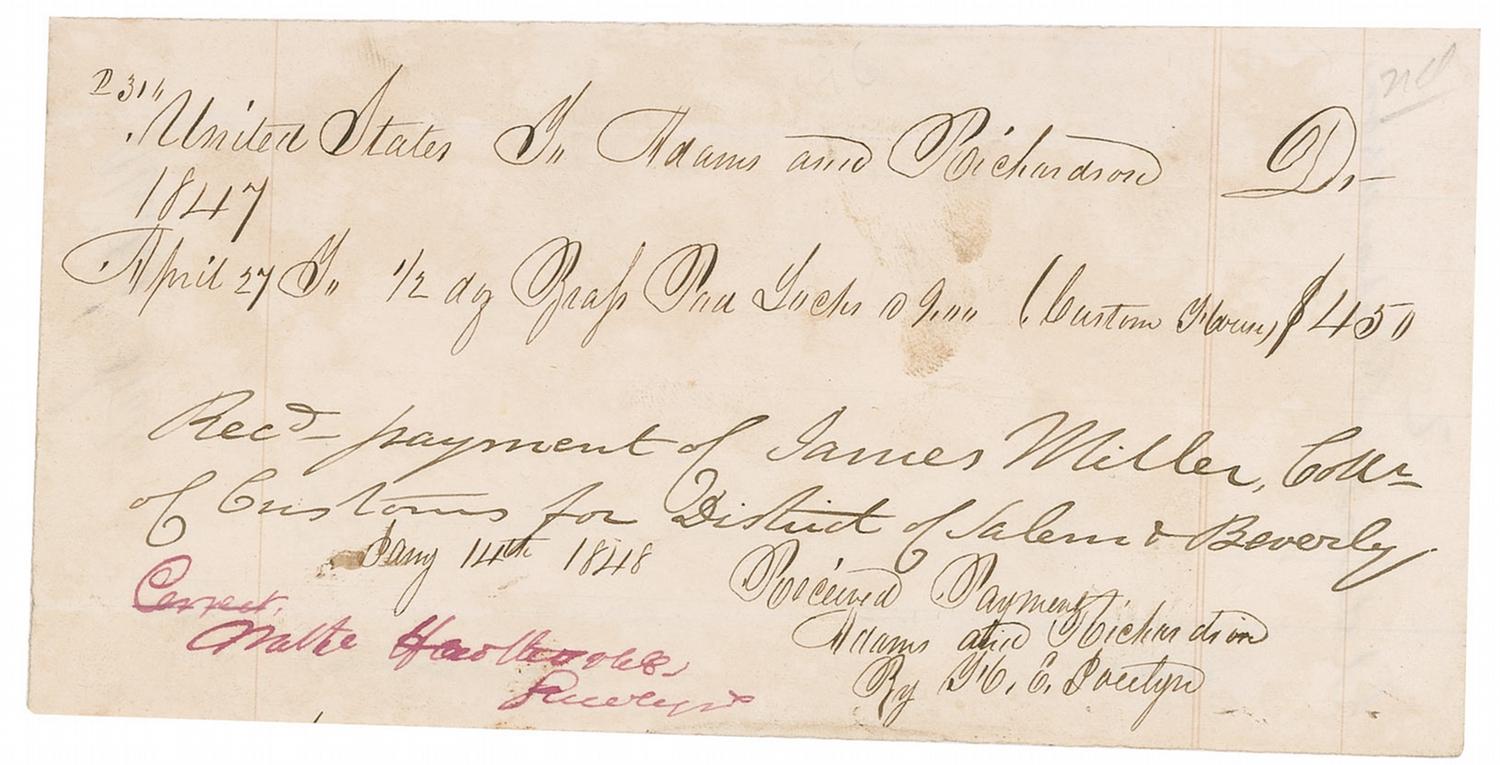 nd
D 31"
United States To Adams and Richardson Dr
1847
April 27 To 1/2 doz Brass Pad Locks @ 9.00 (Custom House) $4 50
Recd payment of James Miller, Collr
of Customs for District of Salem & Beverly
Jany 14th 1848
Received Payment
Adams and Richardson
By H. E. Jocelyn
Correct.
Nathl Hawthorne,
Surveyor